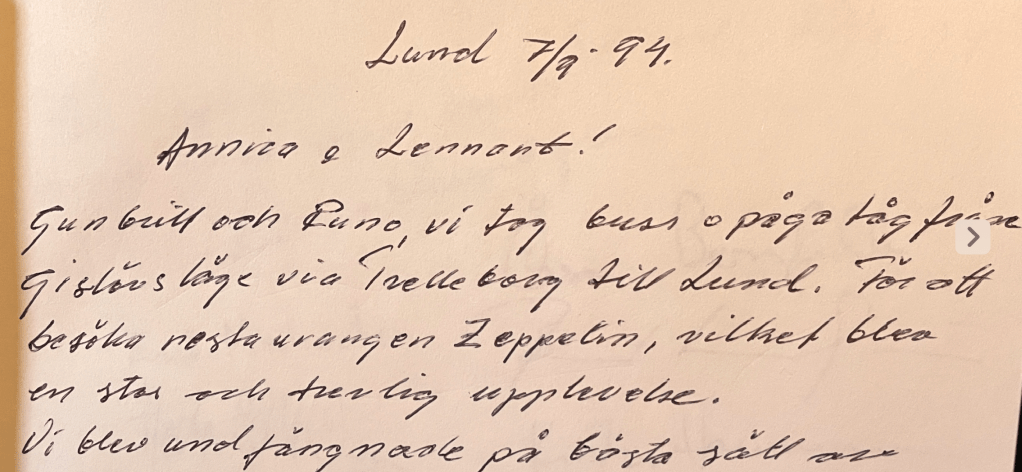 Lund 7/9. 94.
Annica o Lennart!
Gunbritt och Runo, vi tog buss o påga tåg från
Gislövs läge via Trelleborg till Lund. För att
besöka restaurangen Zeppelin, vilket blev
en stor och trevlig upplevelse.
Vi blev undfängnade på bästa sätt av